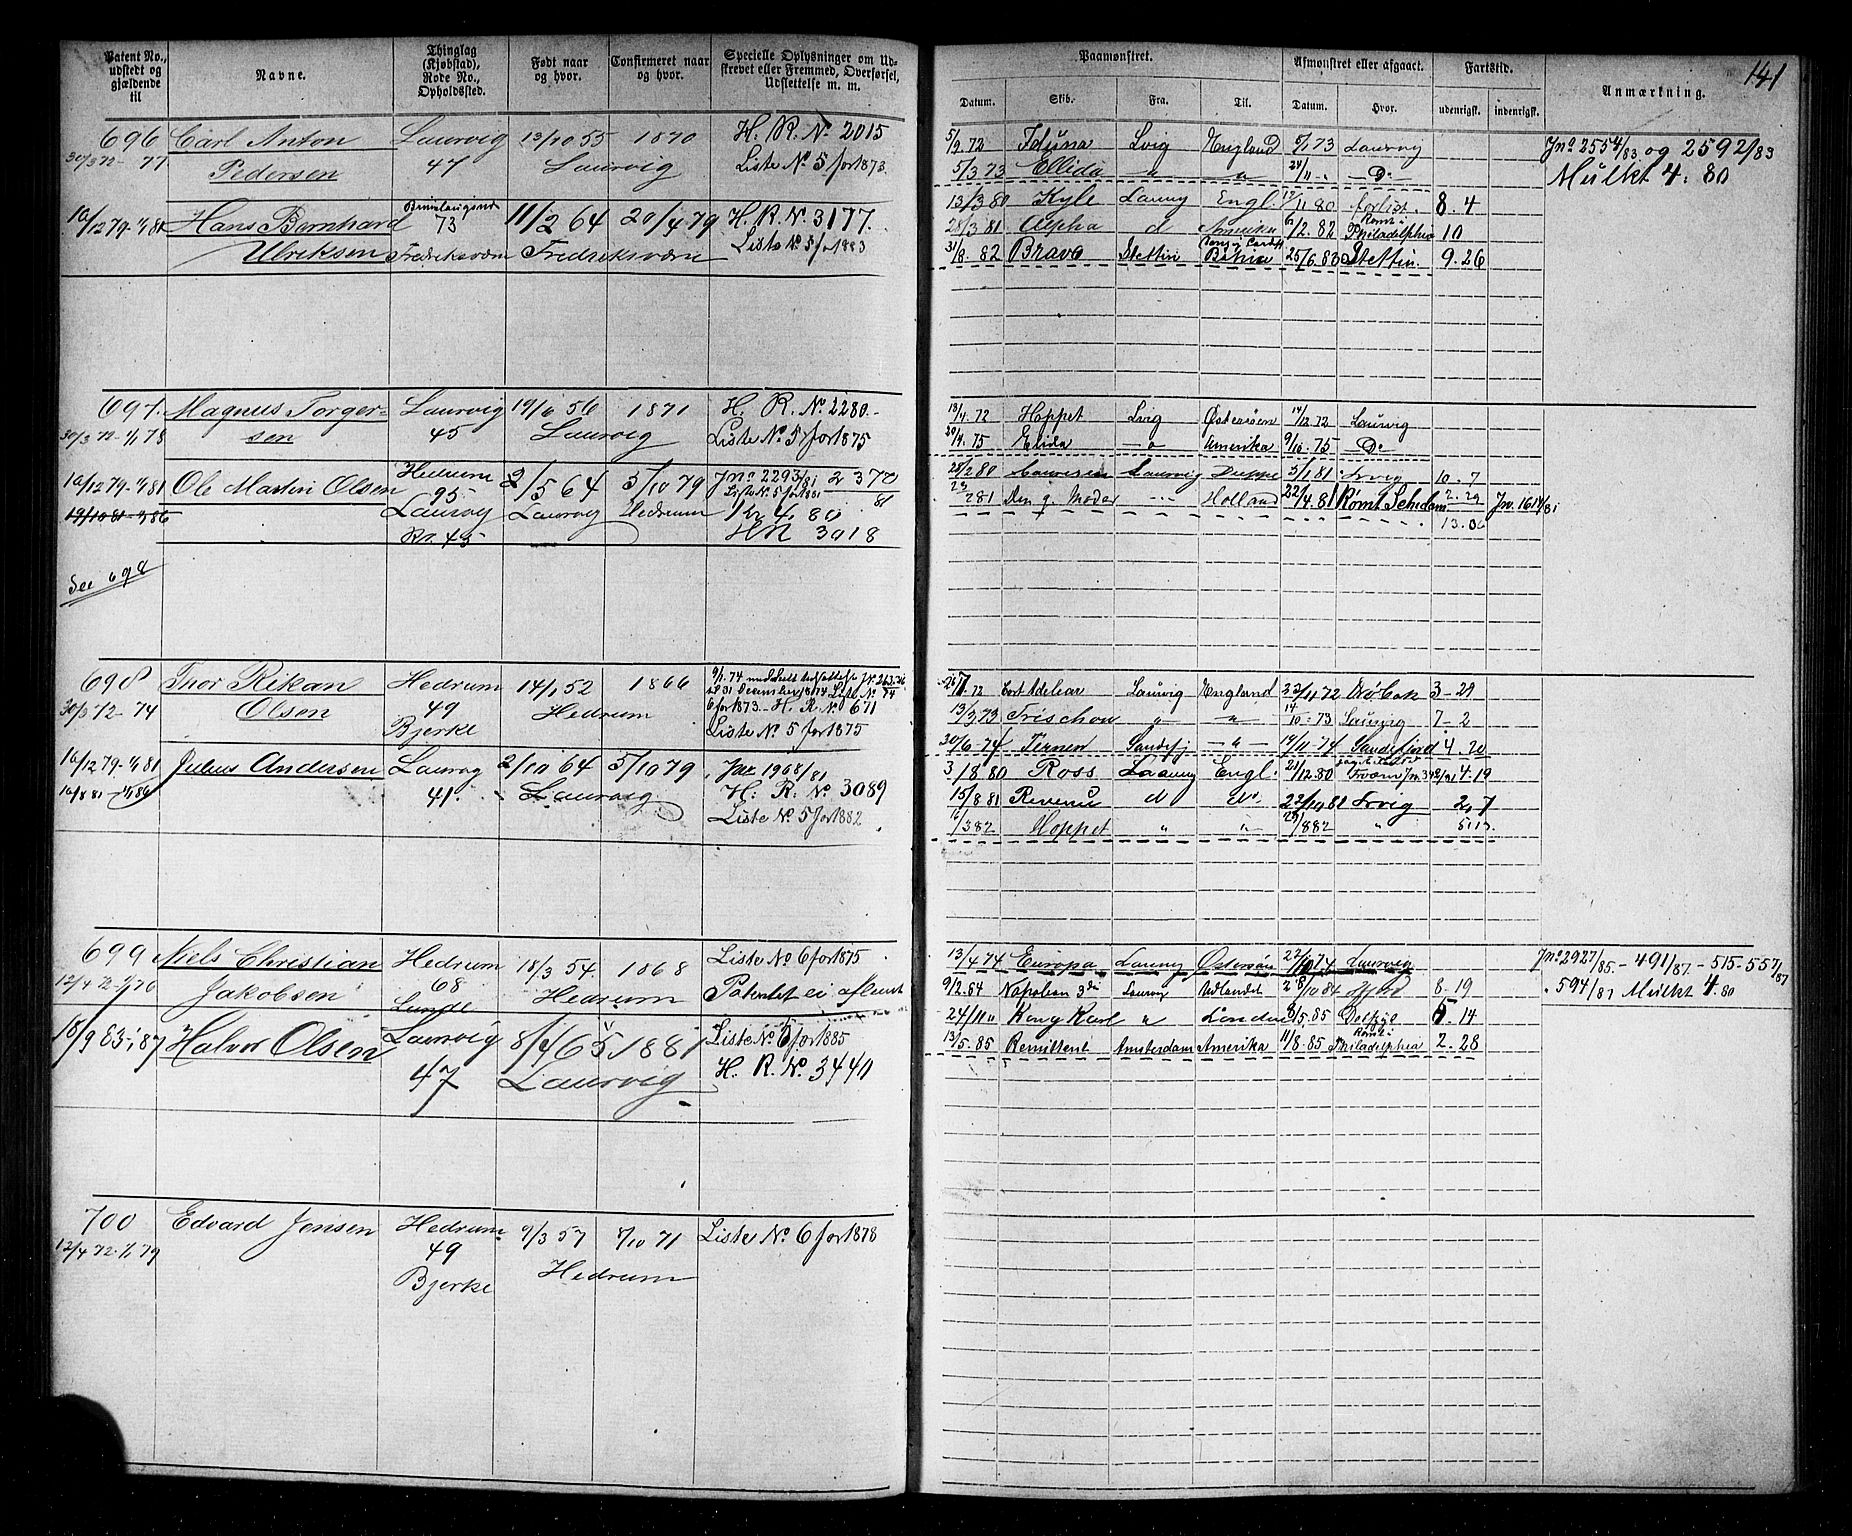 141
Patent No., udstedt og gjældende til
Navne.
Thinglag (Kjøbstad), Rode No., Opholdssted.
Født naar og hvor.
Confirmeret naar og hvor.
Specielle Oplysninger om Udskrevet eller Fremmed, Overførsel, Udslettelse m. m.
Paamønstret.
Afmønstret eller afgaaet.
Fartstid.
Anmærkning.
Datum.
Skib.
Fra.
Til.
Datum.
Hvor.
udenrigsk.
indenrigsk.
696 Carl Anton Laurvig 13/10 55 1870 H. R. No 2015
30/3 72- 77 Pedersen 47 Laurvig Liste No 5 for 1873.
16/12 79-1/1 81 Hans Bernhard 73 11/2 64 20/4 79 H. R. No 3177.
Ulriksen Fredriksværn Fredriksværn Liste No 5 for 1883
5/2 72 Iduna Lvig England 73 Laurvig Jno 2554/83 og 2592/83
5/3 73 Ellida " " 24/11 - Do Mulkt 4. 80
13/3 80 Kyle Laurvig Engl 17/11 80 forlist. 8. 4
28/3 81 Alpha d Amerika 6/12. 82 Rømt i Philadelphia 10
31/8. 82 Bravo Stettin 25/6. 83 Stettin. 9. 26
697. Magnus Torger- Laurvig 19/6 56 1871 H. R. No 2280.-
30/3 72-1/1 78 sen 45 Laurvig Liste No 5 for 1875
16/12 79-1/1 81 Ole Martin Olsen Hedrum 95 2/5 64 5/10 79 Jno 2293/81 2370/81
Liste No 5 for 1881
19/10 81-1/1 86 Laurvig Laurvig Hedrum 1 kr 4. 80
Rn. 45 HR 3018
See 698
13/4. 72 Hoppet Lvig Østersøen 14/12 72 Laurvig
20/4. 75 Elida - " Amerika 9/10. 75 Do
28/2 80 Laurvig Dieppe 5/1 81 Lrvig 10. 7
23/2 81 Den g. Moder - Holland 22/4. 81 Rømt Schidam 2. 29 Jn. 1614/81
13. 06
698 Thor Rikan Hedrum 14/1 52 1866
30/3 72-74 Olsen 49 Hedrum
6 for 1873.- H. R. No 671
Bjerke Liste No 5 for 1875
16/12 79-1/1 81 Julius Andersen Laurvig 2/10 64 5/10 79 Jno 1968/81
16/8 81-1/1 86 41. Laurvig H. R. No 3089
Liste No 5 for 1882
26/7 72 Cort Adelaer Laurvig England 22/11 72 3-29
13/3 73 Frischon " - " - 14/10-73 Laurvig 7-2
30/6-74 Ternen Sandefj - " - 14/11-74 Sandefjord 4. 20
3/8 80 Ross Laurvig Engl. 21/12. 80 4.19
15/8 81 Revenu d do. 22/10 81 Lrvig 2, 7
16/3 82 Hoppet " " 29/8 82 " 5.13.
699 Niels Christian Hedrum 18/3 54. 1868 Liste No 6 for 1875
12/4 72-1/1 76 Jakobsen 68 Hedrum Patentet ei afhent
Lunde
18/9 83-1/1 87 Halvor Olsen Laurvig 8/4 65 1881 Liste No 6 for 1885
47 Laurvig H. R. No. 3440
13/4 74 Europa Laurvig Østersøen 22/10 74 Laurvig Jno 2927/85. - 491/87. - 515-557/87
9/2. 84 Napoleon 3die Laurvig Udlandet 28/10 84 8-19 . 594/87 Mulkt 4. 80
24/11 " Kong Karl " London 9/5. 85 5. 14
13/5. 85 Remittent Amsterdam Amerika 11/8. 85 Rømt i Philadelphia 2. 28
700 Edvard Jensen Hedrum 9/3 57 /10 71 Liste No 6 for 1878
12/4 72-1/1 79 49 Hedrum
Bjerke